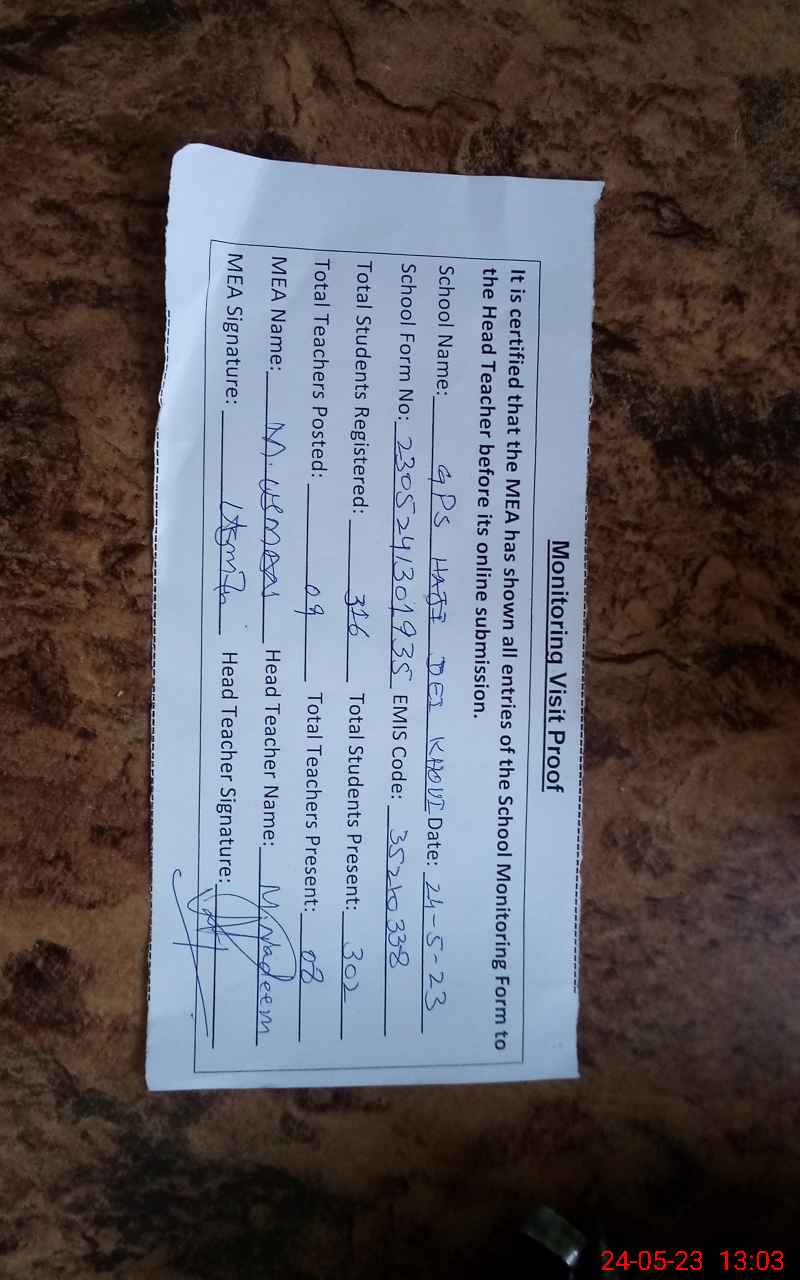 Monitoring Visit Proof
It is certified that the MEA has shown all entries of the School Monitoring Form to
the Head Teacher before its online submission.
School Name: GPS HAJI DEI KHOVI Date: 24-5-23
School Form No: 2305241301935 EMIS Code: 35210338
Total Students Registered: 316 Total Students Present: 302
Total Teachers Posted: 09 Total Teachers Present: 08
MEA Name: M. USMAN Head Teacher Name: M. Nadeem
MEA Signature: Head Teacher Signature:
24-05-23 13:03